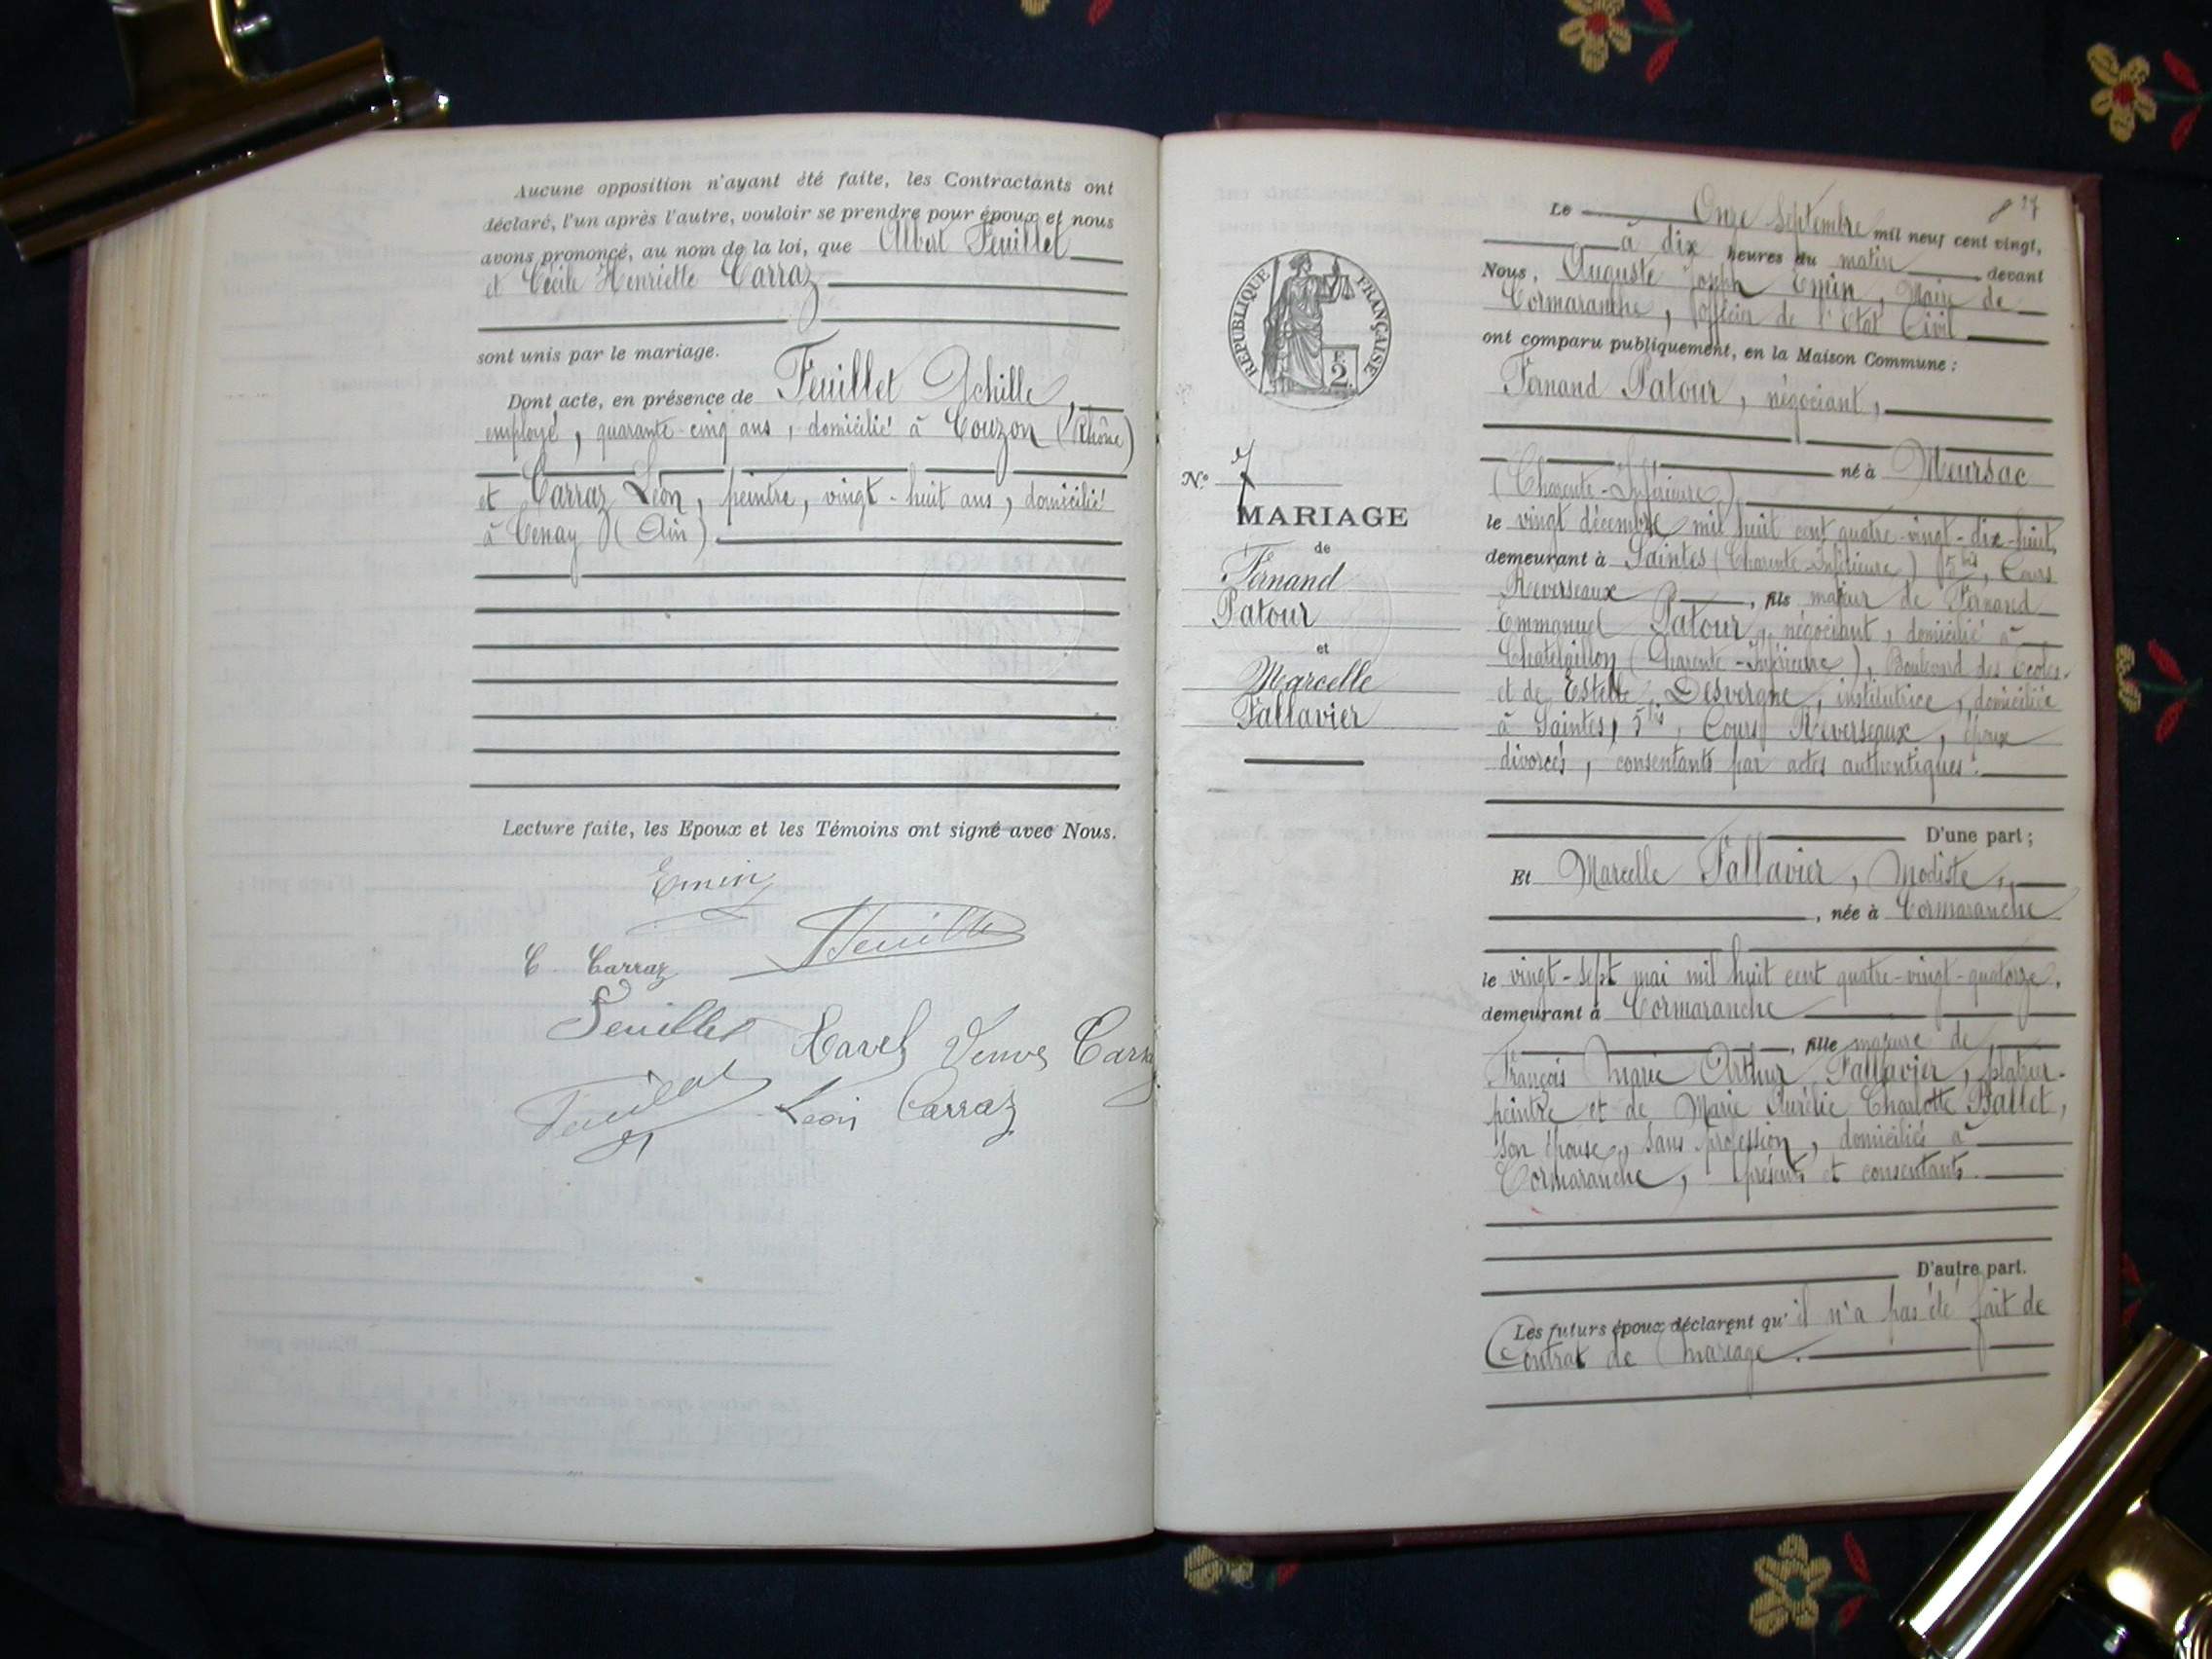 Aucune opposition n'ayant été faite, les Contractants ont
déclaré, l'un après l'autre, vouloir se prendre pour époux et nous
avons prononcé, au nom de la loi, que Albert Feuillet
et Cécile Henriette Carraz
sont unis par le mariage.
Dont acte, en présence de Feuillet Achille,
employé, quarante-cinq ans, domicilié à Couzon (Rhône)
et Carraz Léon, peintre, vingt-huit ans, domicilié
à Tenay (Ain)
Lecture faite, les Epoux et les Témoins ont signé avec Nous.
Emin
C. Carraz
Feuillet
Veuve Carraz
Léon Carraz
17
RÉPUBLIQUE FRANÇAISE
2
N° 7
MARIAGE
de
Fernand
Patour
et
Marcelle
Fallavier
Le Onze Septembre mil neuf cent vingt,
à dix heures du matin devant
Nous, Auguste Joseph Emin, Maire de
Cormaranche, Officier de l'Etat Civil
ont comparu publiquement, en la Maison Commune :
Fernand Patour, négociant,
né à Meursac
(Charente-Inférieure)
le vingt décembre mil huit cent quatre-vingt-dix-huit,
demeurant à Saintes (Charente-Inférieure) 5 bis, Cours
Reverseaux, fils majeur de Fernand
Emmanuel Patour, négociant, domicilié à
Chatelaillon (Charente-Inférieure), Boulevard des Ecoles,
et de Estelle Desvergne, institutrice, domiciliée
à Saintes, 5 bis, Cours Reverseaux, époux
divorcés, consentants par actes authentiques.
D'une part ;
Et Marcelle Fallavier, Modiste,
, née à Cormaranche
le vingt-sept mai mil huit cent quatre-vingt-quatorze,
demeurant à Cormaranche
, fille majeure de
François Marie Arthur Fallavier, platrier-
peintre et de Marie Aurélie Charlotte Ballet,
son épouse, sans profession, domiciliés à
Cormaranche, présents et consentants.
D'autre part.
Les futurs époux déclarent qu'il n'a pas été fait de
Contrat de mariage.